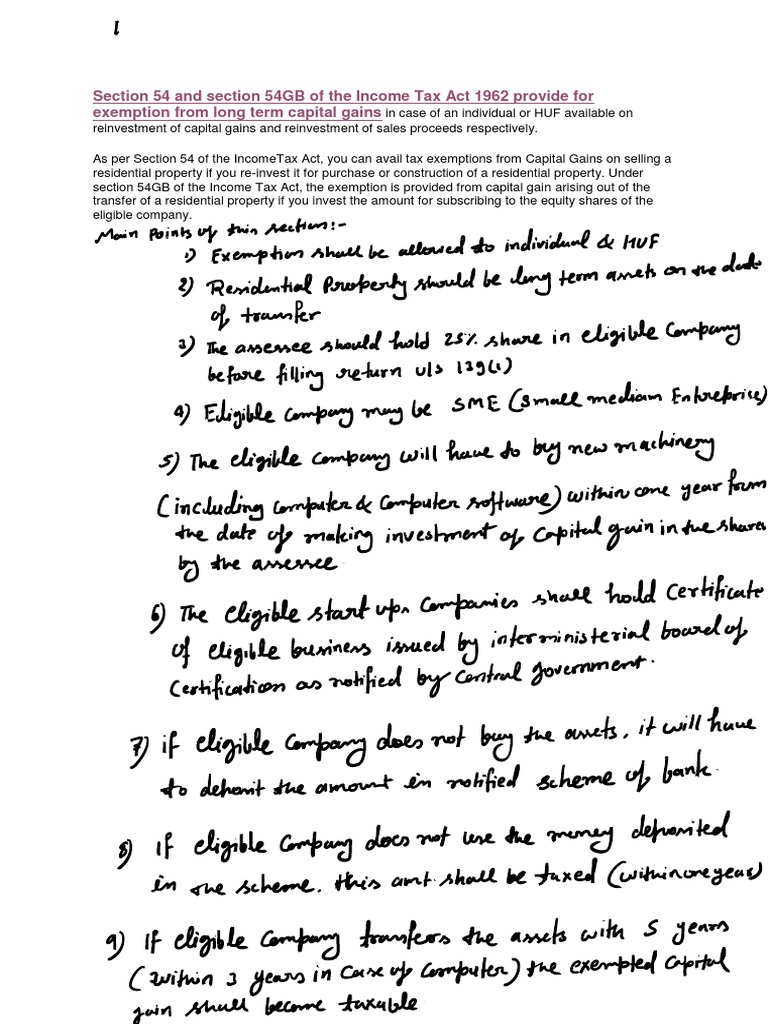 1
Section 54 and section 54GB of the Income Tax Act 1962 provide for
exemption from long term capital gains in case of an individual or HUF available on
reinvestment of capital gains and reinvestment of sales proceeds respectively.
As per Section 54 of the IncomeTax Act, you can avail tax exemptions from Capital Gains on selling a
residential property if you re-invest it for purchase or construction of a residential property. Under
section 54GB of the Income Tax Act, the exemption is provided from capital gain arising out of the
transfer of a residential property if you invest the amount for subscribing to the equity shares of the
eligible company.
Main Points of this section:-
1) Exemption shall be allowed to individual & HUF
2) Residential Property should be long term assets on the date
of transfer
3) The assessee should hold 25% share in eligible Company
before filling return u/s 139(1)
4) Eligible Company may be SME (Small medium Entreprice)
5) The eligible Company will have to buy new machinery
(including Computer & Computer software) within one year form
the date of making investment of Capital gain in the shares
by the assessee
6) The eligible start up. Companies shall hold Certificate
of eligible business issued by interministerial board of
Certification as notified by Central government.
7) if eligible Company does not buy the assets, it will have
to deposit the amount in notified scheme of bank.
8) If eligible Company does not use the money deposited
in the scheme. this amt. shall be taxed (within one year)
9) If eligible Company transfers the assets with 5 years
(within 3 years in Case of Computer) the exempted Capital
gain shall become taxable